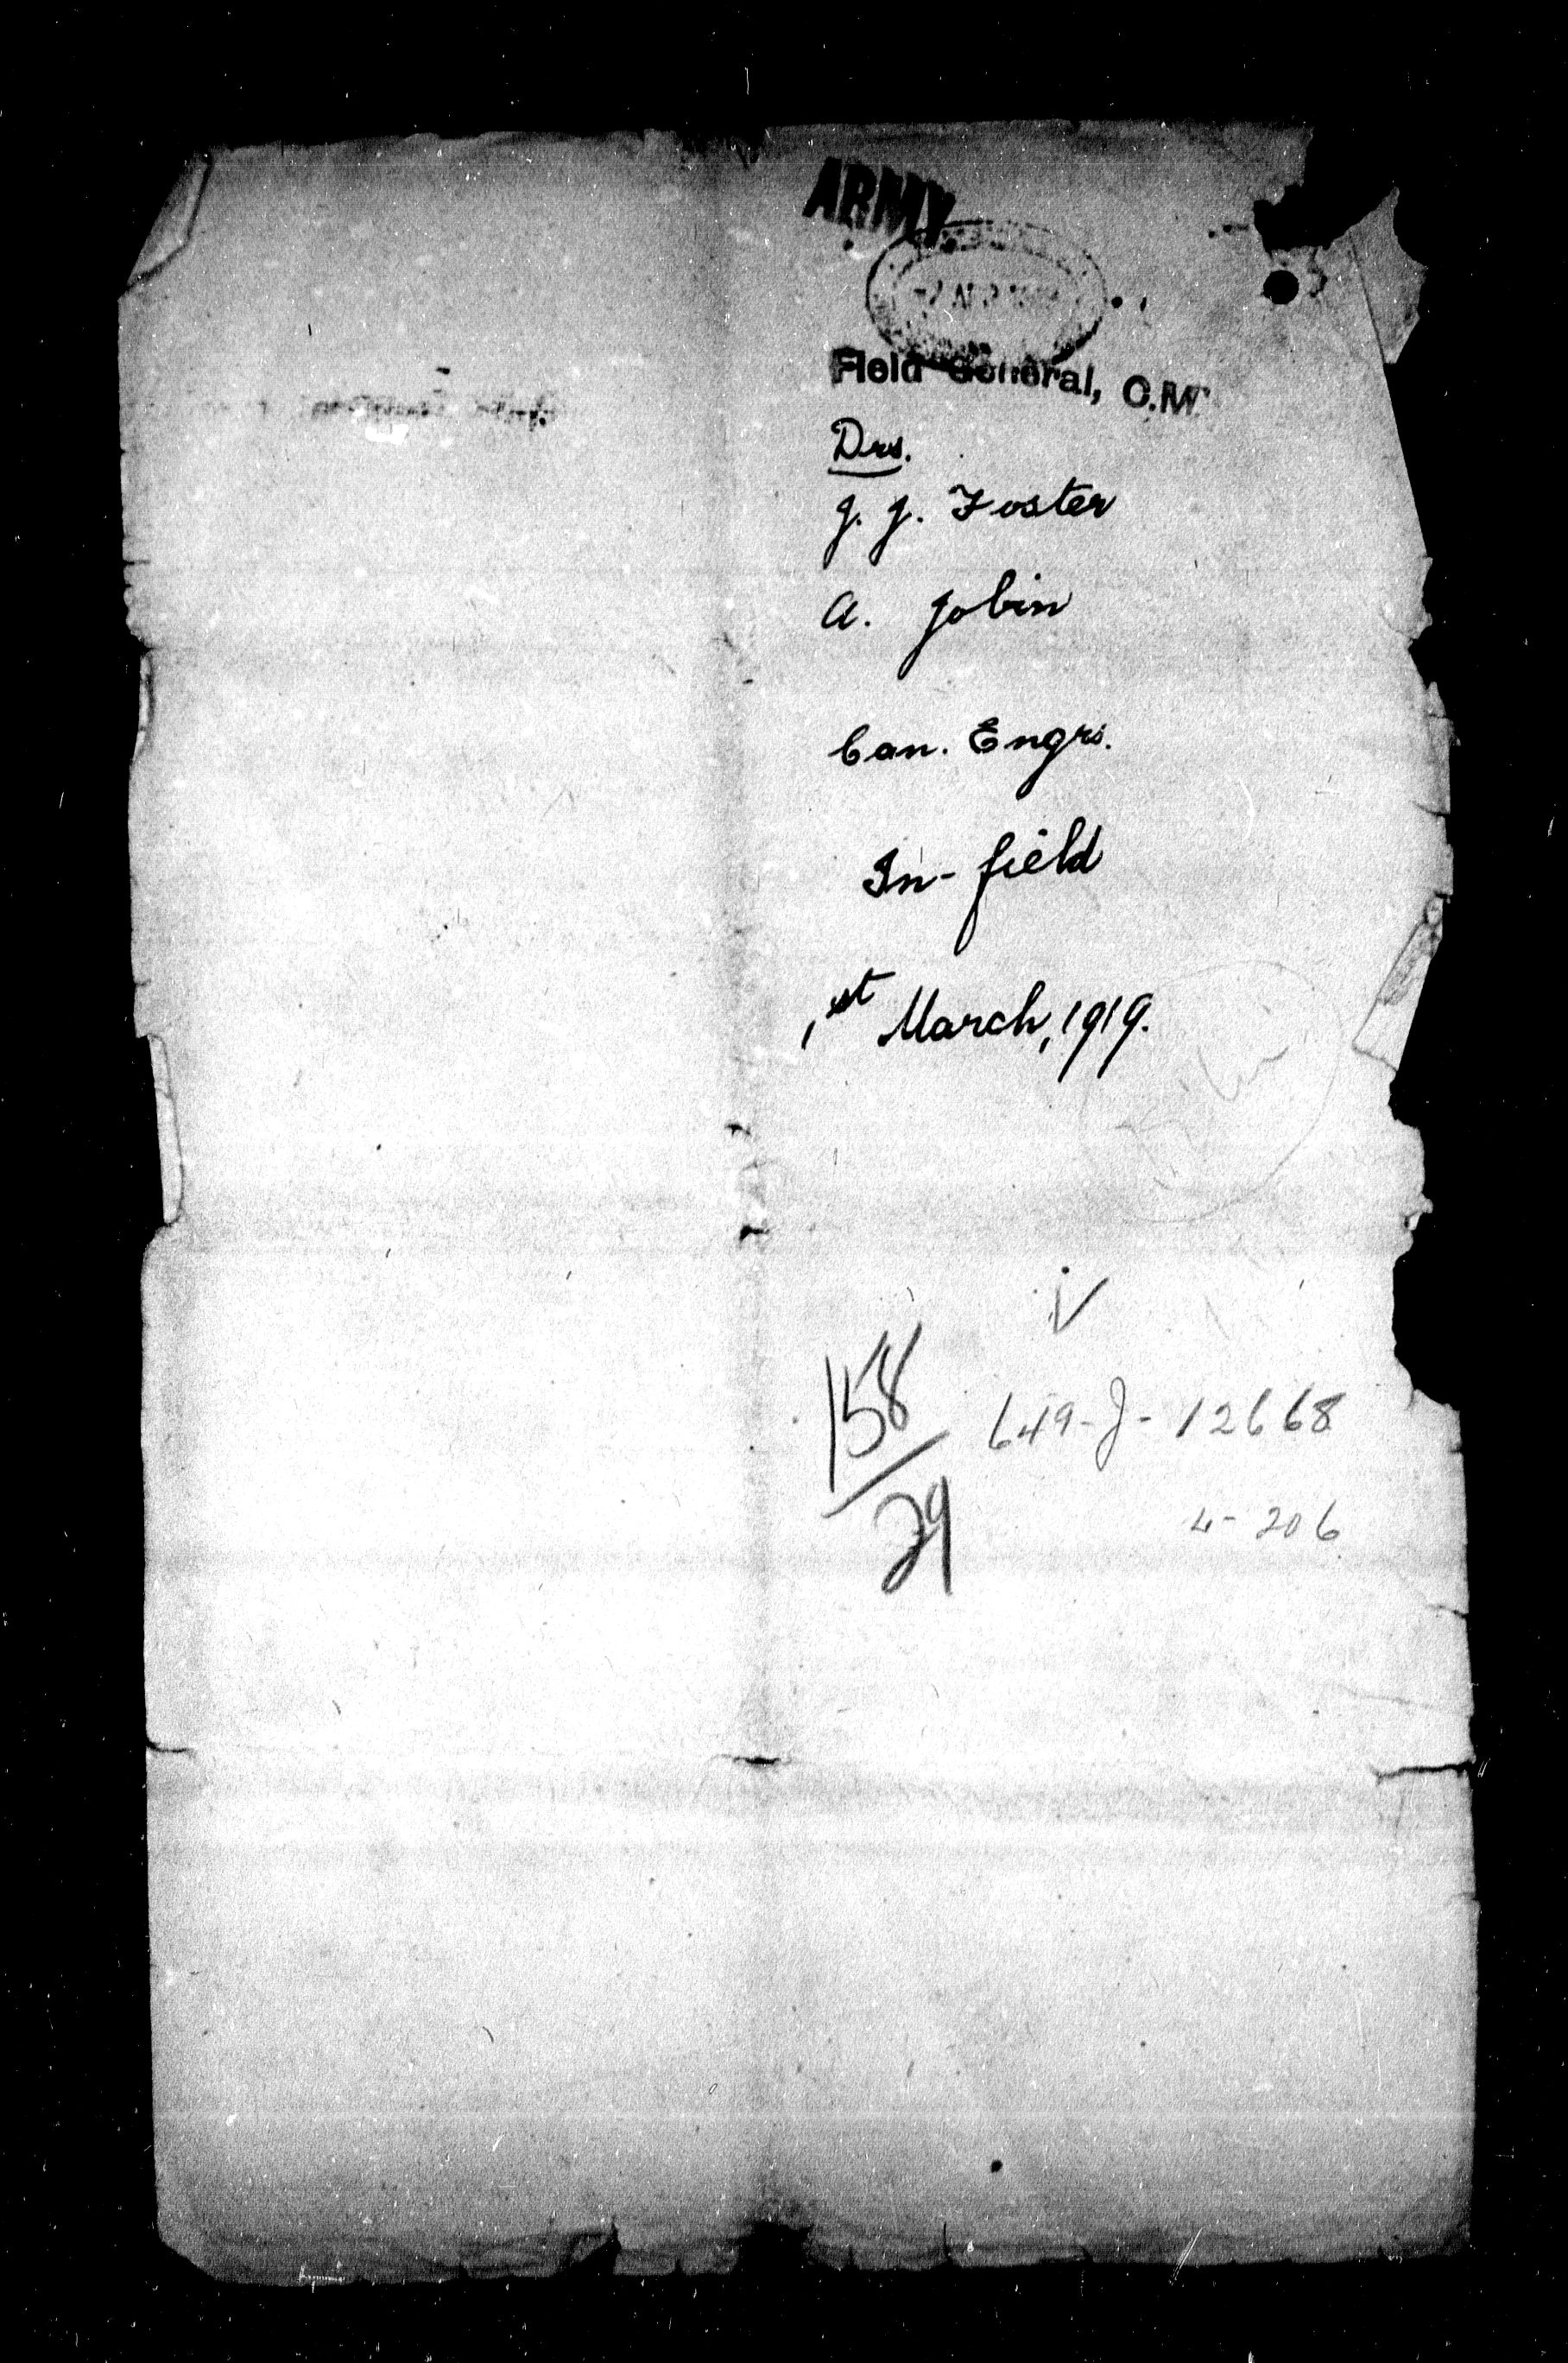 ARMY
APR
Field General, C.M.
Drs.
J. J. Foster
A. Jobin
Can. Engrs.
In-field
1st March, 1919.
158
649-J-12668
29
4-206